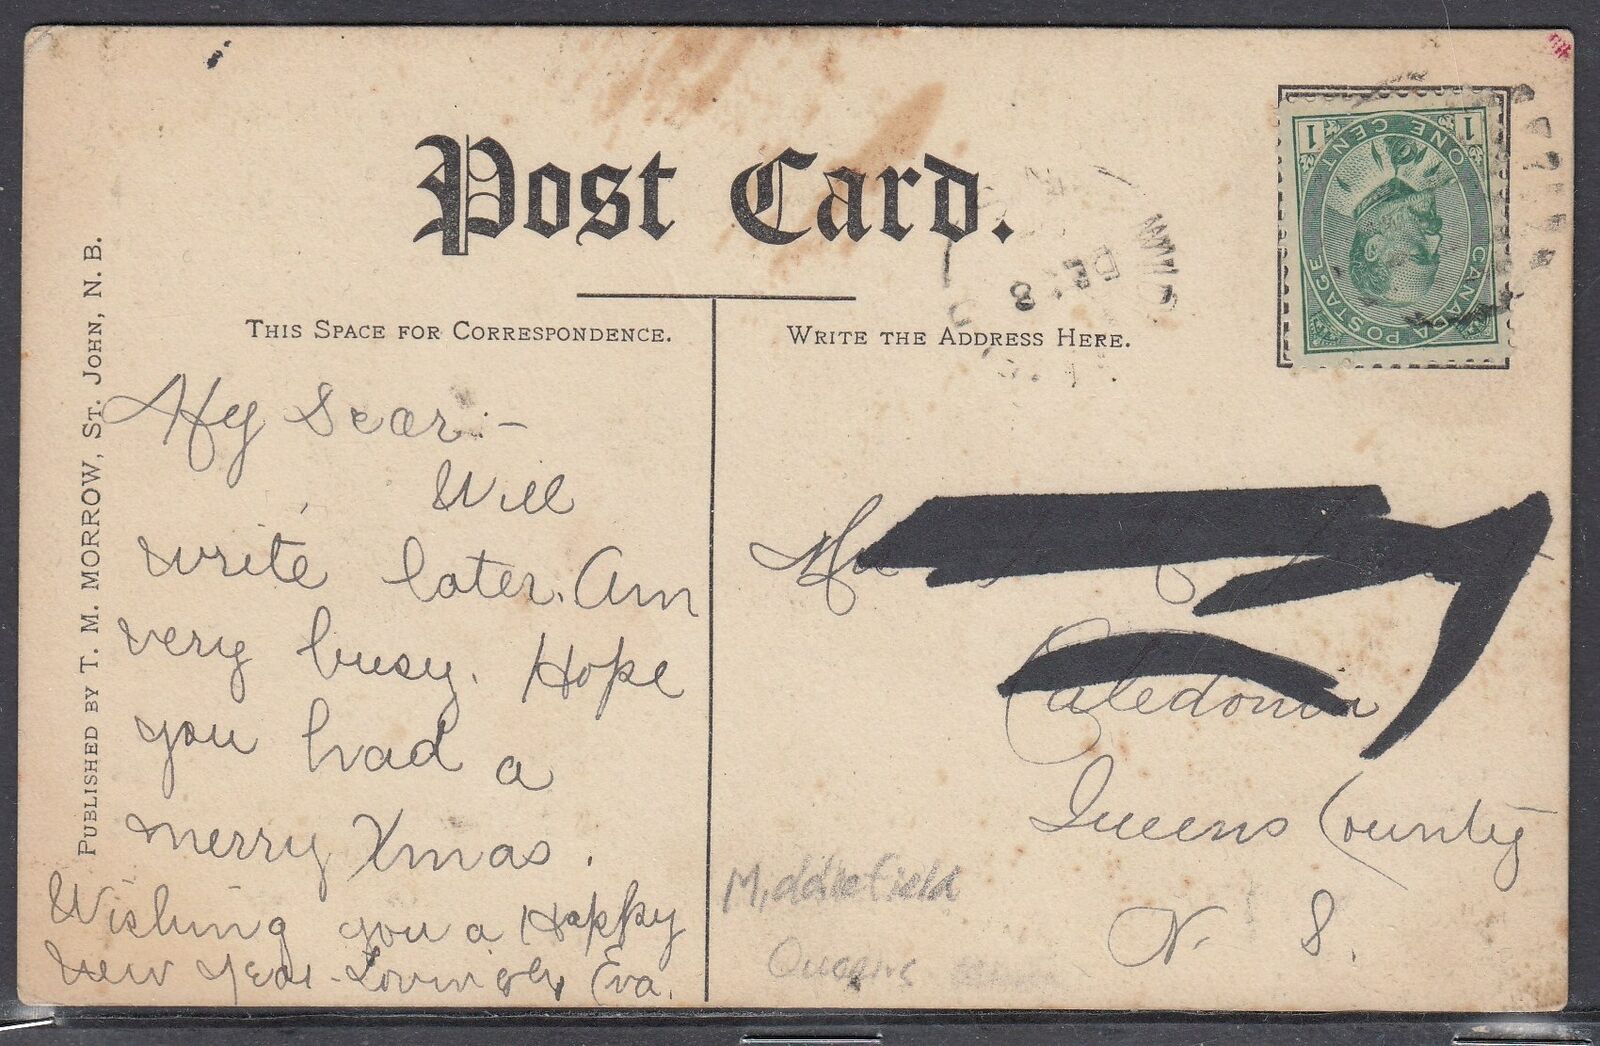 Post Card.
THIS SPACE FOR CORRESPONDENCE.
WRITE THE ADDRESS HERE.
PUBLISHED BY T. M. MORROW, ST. JOHN, N. B.
CANADA POSTAGE
ONE CENT
1 1
DE 18
My Dear :-
Will
write later. Am
very busy. Hope
you had a
merry Xmas.
Wishing you a Happy
New Year - Lovingly Eva.
Caledonia
Queens County
N. S.
Middlefield
Queens